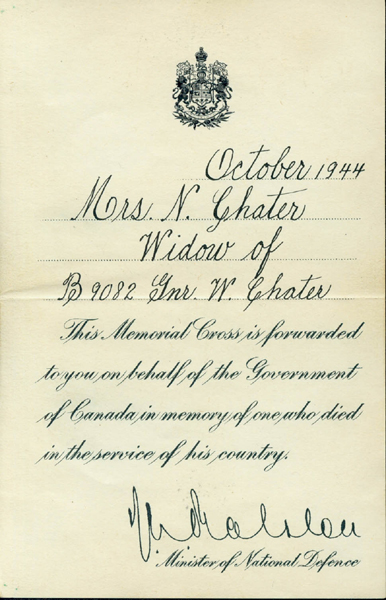 October 1944
Mrs. N. Chater
Widow of
B 9082 Gnr. W. Chater
This Memorial Cross is forwarded
to you on behalf of the Government
of Canada in memory of one who died
in the service of his country.
Ralston
Minister of National Defence